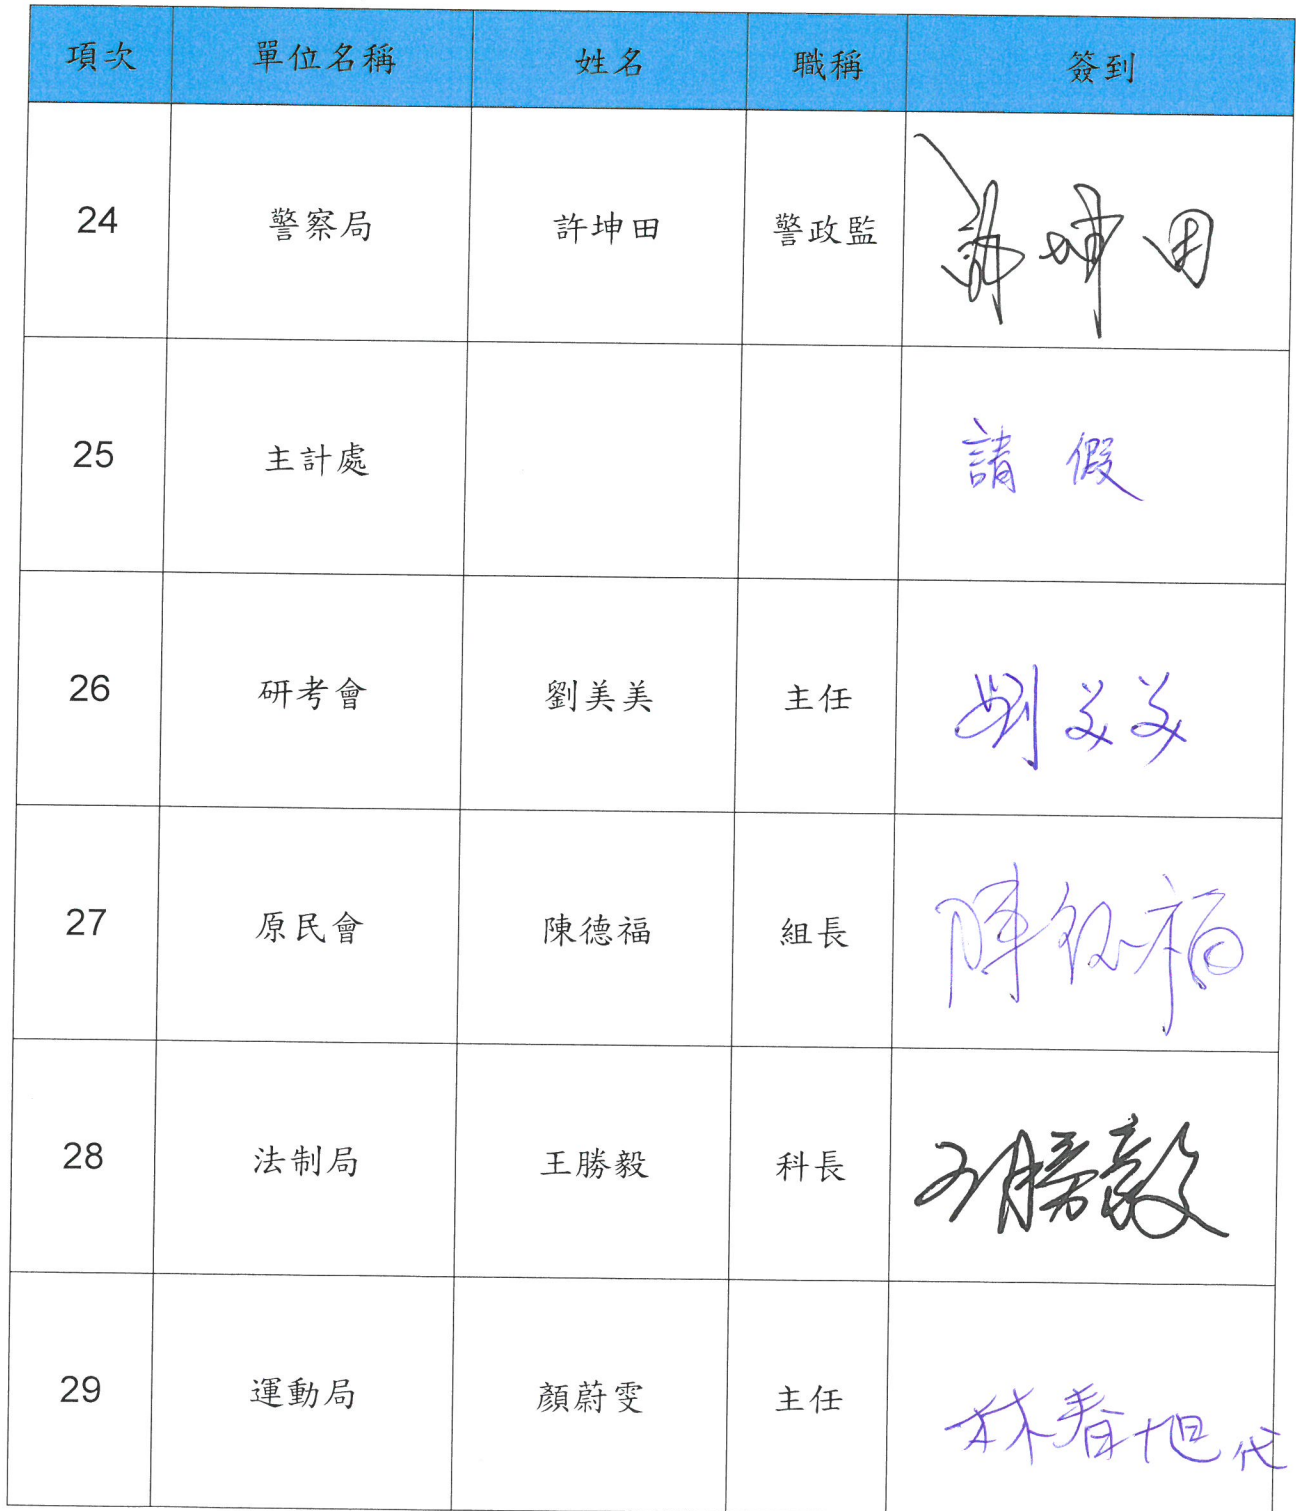 項次 單位名稱 姓名 職稱 簽到
24 警察局 許坤田 警政監 許坤田
25 主計處 請假
26 研考會 劉美美 主任 劉美美
27 原民會 陳德福 組長 陳德福
28 法制局 王勝毅 科長 王勝毅
29 運動局 顏蔚雯 主任 林春旭代